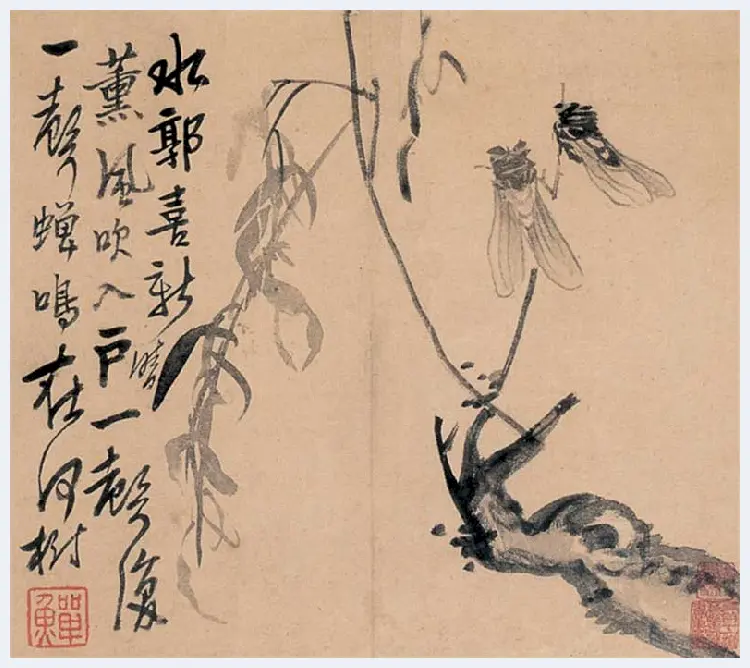 水郭喜新晴
薰風吹入戶一聲復
一聲蟬鳴在何樹
鱓